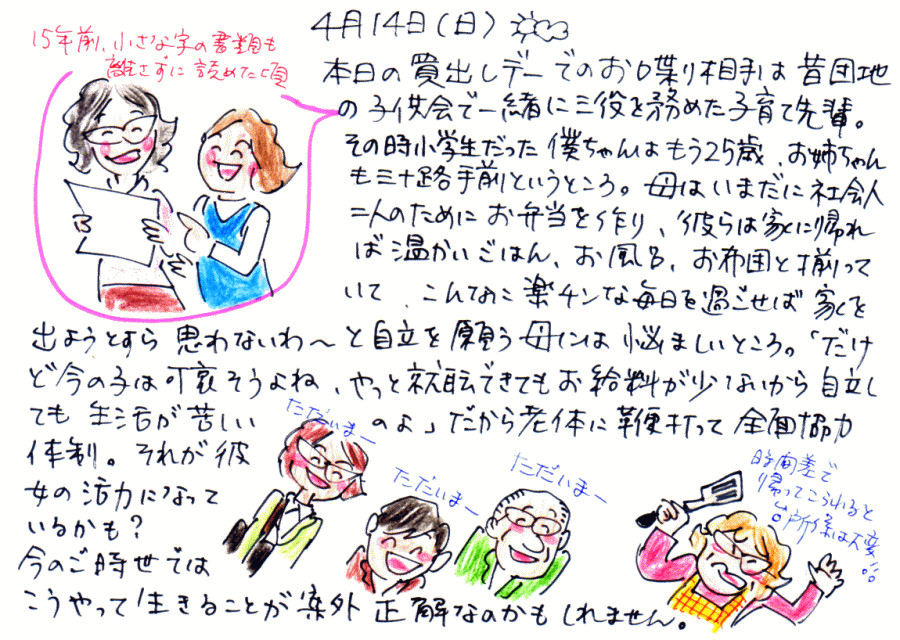 4月14日(日)
15年前、小さな字の書類も
離さずに読めた頃
本日の買出しデーでのお喋り相手は昔団地
の子供会で一緒に三役を務めた子育て先輩。
その時小学生だった僕ちゃんはもう25歳、お姉ちゃん
も三十路手前というところ。母はいまだに社会人
二人のためにお弁当を作り、彼らは家に帰れ
ば温かいごはん、お風呂、お布団と揃って
いて、こんなに楽チンな毎日を過ごせば家を
出ようとすら思わないわ〜と自立を願う母には悩ましいところ。「だけ
ど今の子は可哀そうよね、やっと就職できてもお給料が少ないから自立し
ても生活が苦しいのよ」だから老体に鞭打って全面協力
体制。それが彼
女の活力になって
いるかも?
今のご時世では
こうやって生きることが案外正解なのかもしれません。
ただいまー
ただいまー
ただいまー
時間差で
帰ってこられると
台所係は大変